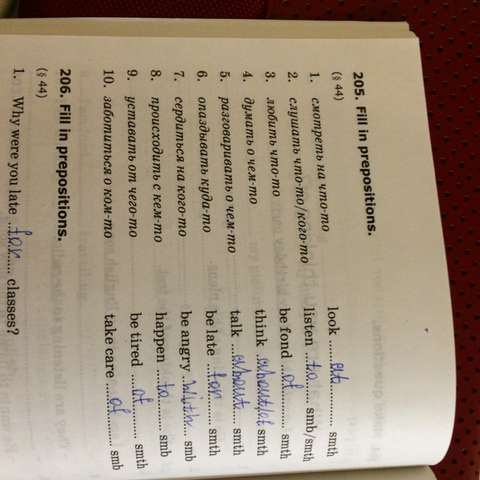 205. Fill in prepositions.
(§ 44)
1. смотреть на что-то look ....at.... smth
2. слушать что-то/кого-то listen ...to... smb/smth
3. любить что-то be fond ...of... smth
4. думать о чем-то think ..about/of smth
5. разговаривать о чем-то talk ...about... smth
6. опаздывать куда-то be late ...for... smth
7. сердиться на кого-то be angry ..with... smb
8. происходить с кем-то happen ...to... smb
9. уставать от чего-то be tired ...of... smth
10. заботиться о ком-то take care ...of... smb
206. Fill in prepositions.
(§ 44)
1. Why were you late ...for... classes?